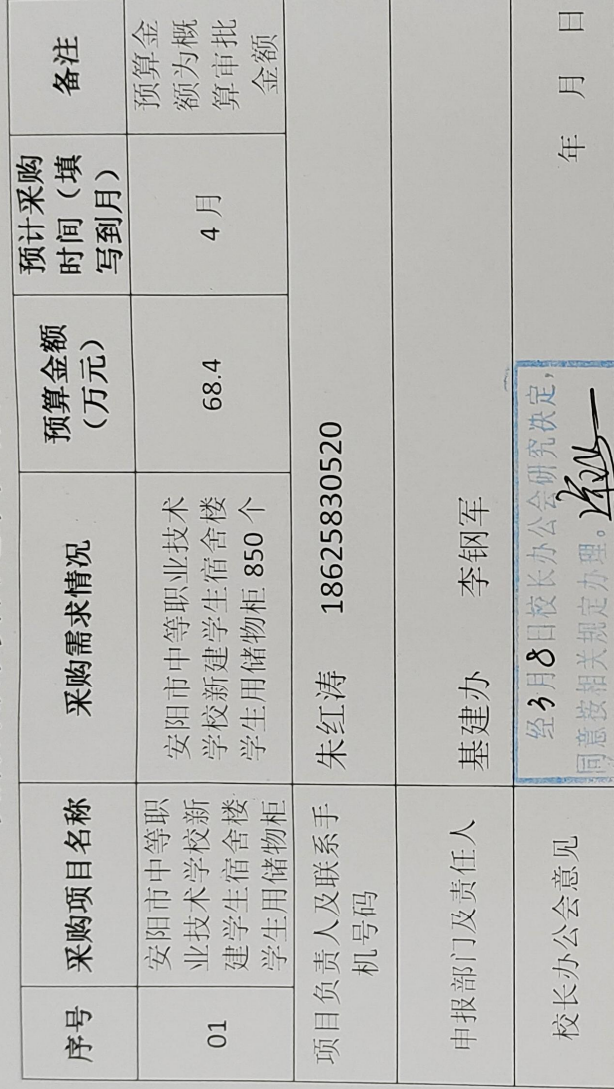 序号
采购项目名称
采购需求情况
预算金额
（万元）
预计采购
时间（填
写到月）
备注
01
安阳市中等职
业技术学校新
建学生宿舍楼
学生用储物柜
安阳市中等职业技术
学校新建学生宿舍楼
学生用储物柜 850 个
68.4
4 月
预算金
额为概
算审批
金额
项目负责人及联系手
机号码
朱红涛 18625830520
申报部门及责任人
基建办 李钢军
校长办公会意见
经3月8日校长办公会研究决定，
同意按相关规定办理。
年 月 日